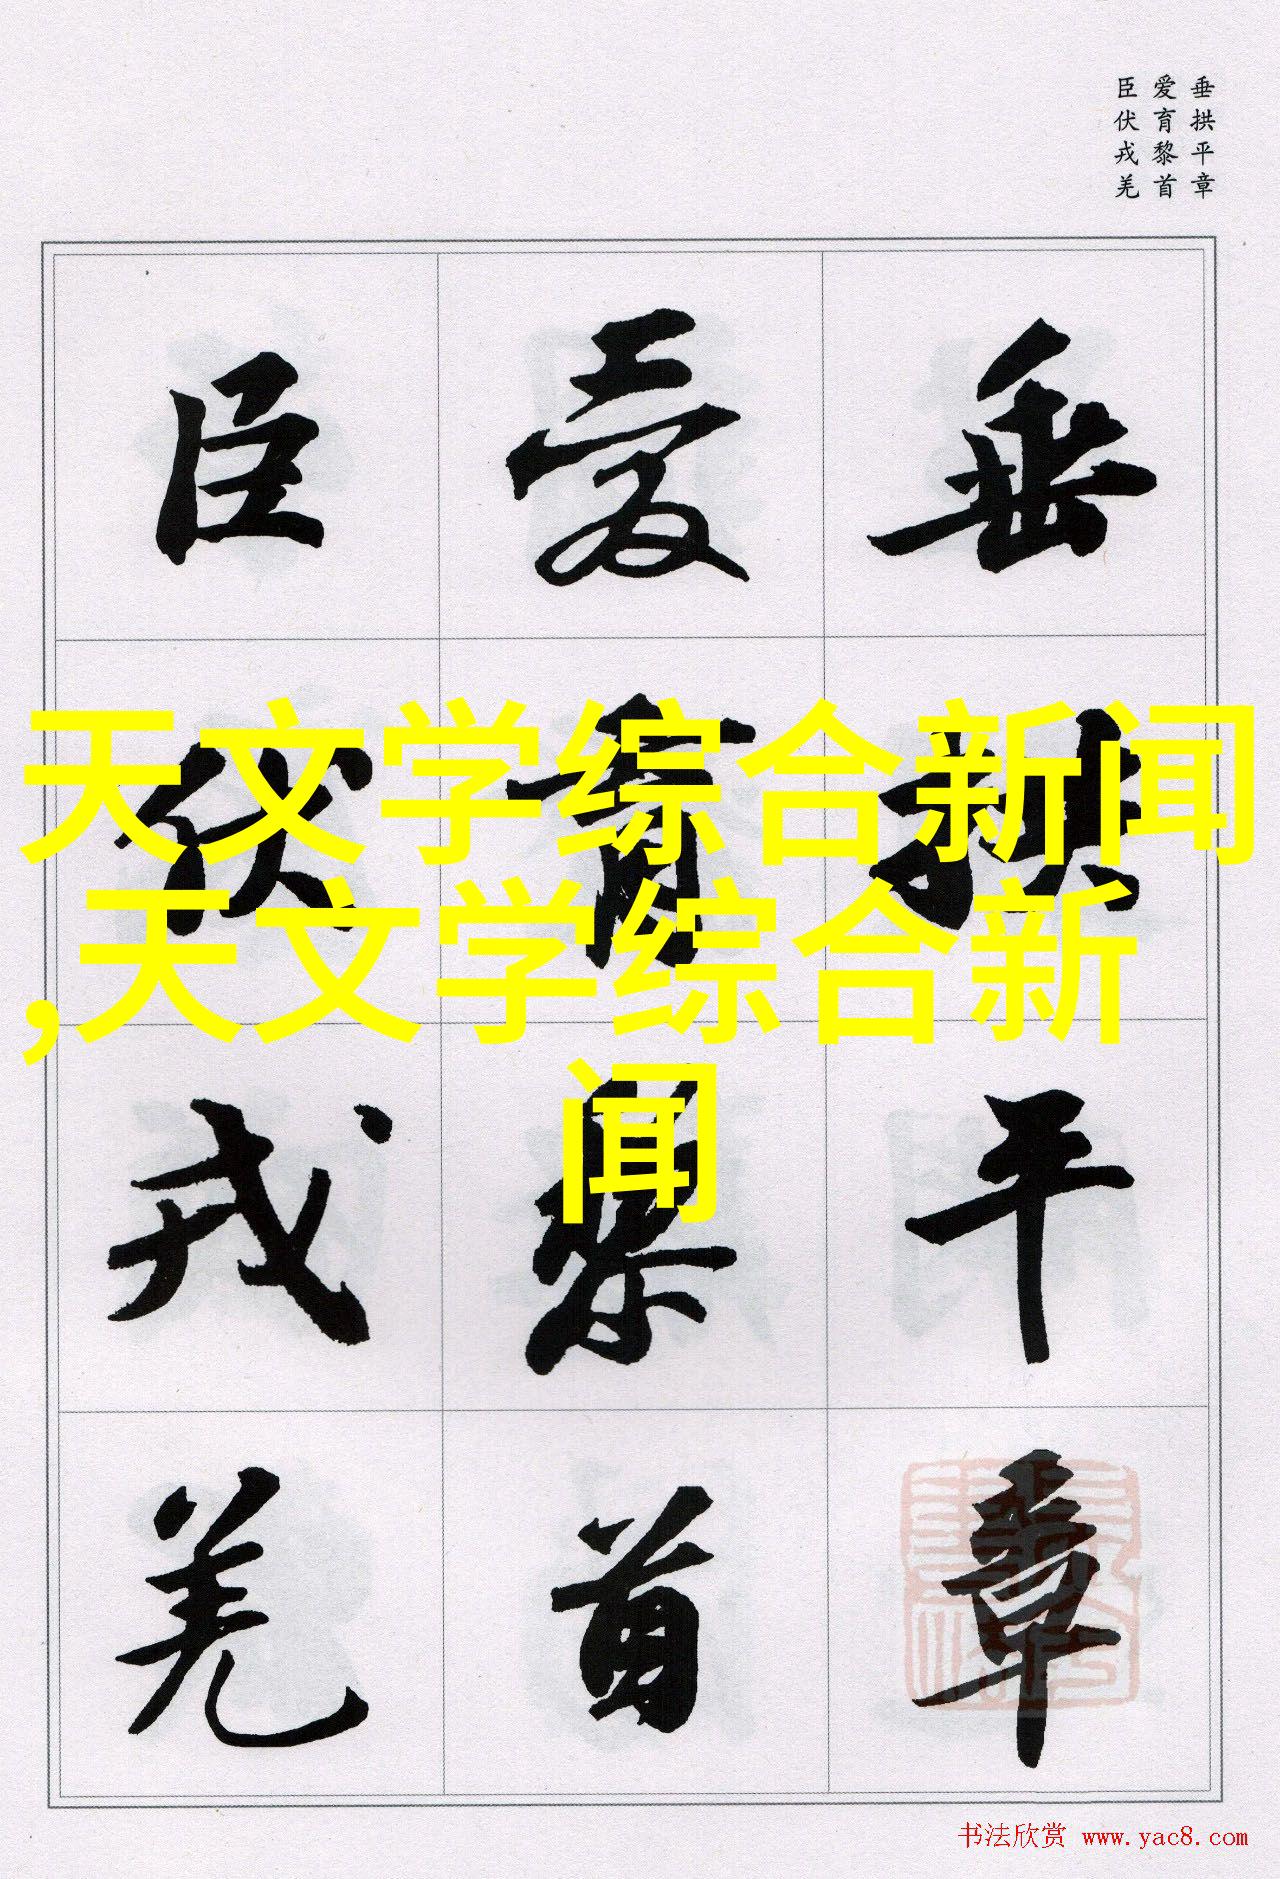 垂拱平章
爱育黎首
臣伏戎羌
垂拱平章
爱育黎首
臣伏戎羌
天文学综合新闻
,天文学综合新
闻
书法欣赏 www.yac8.com